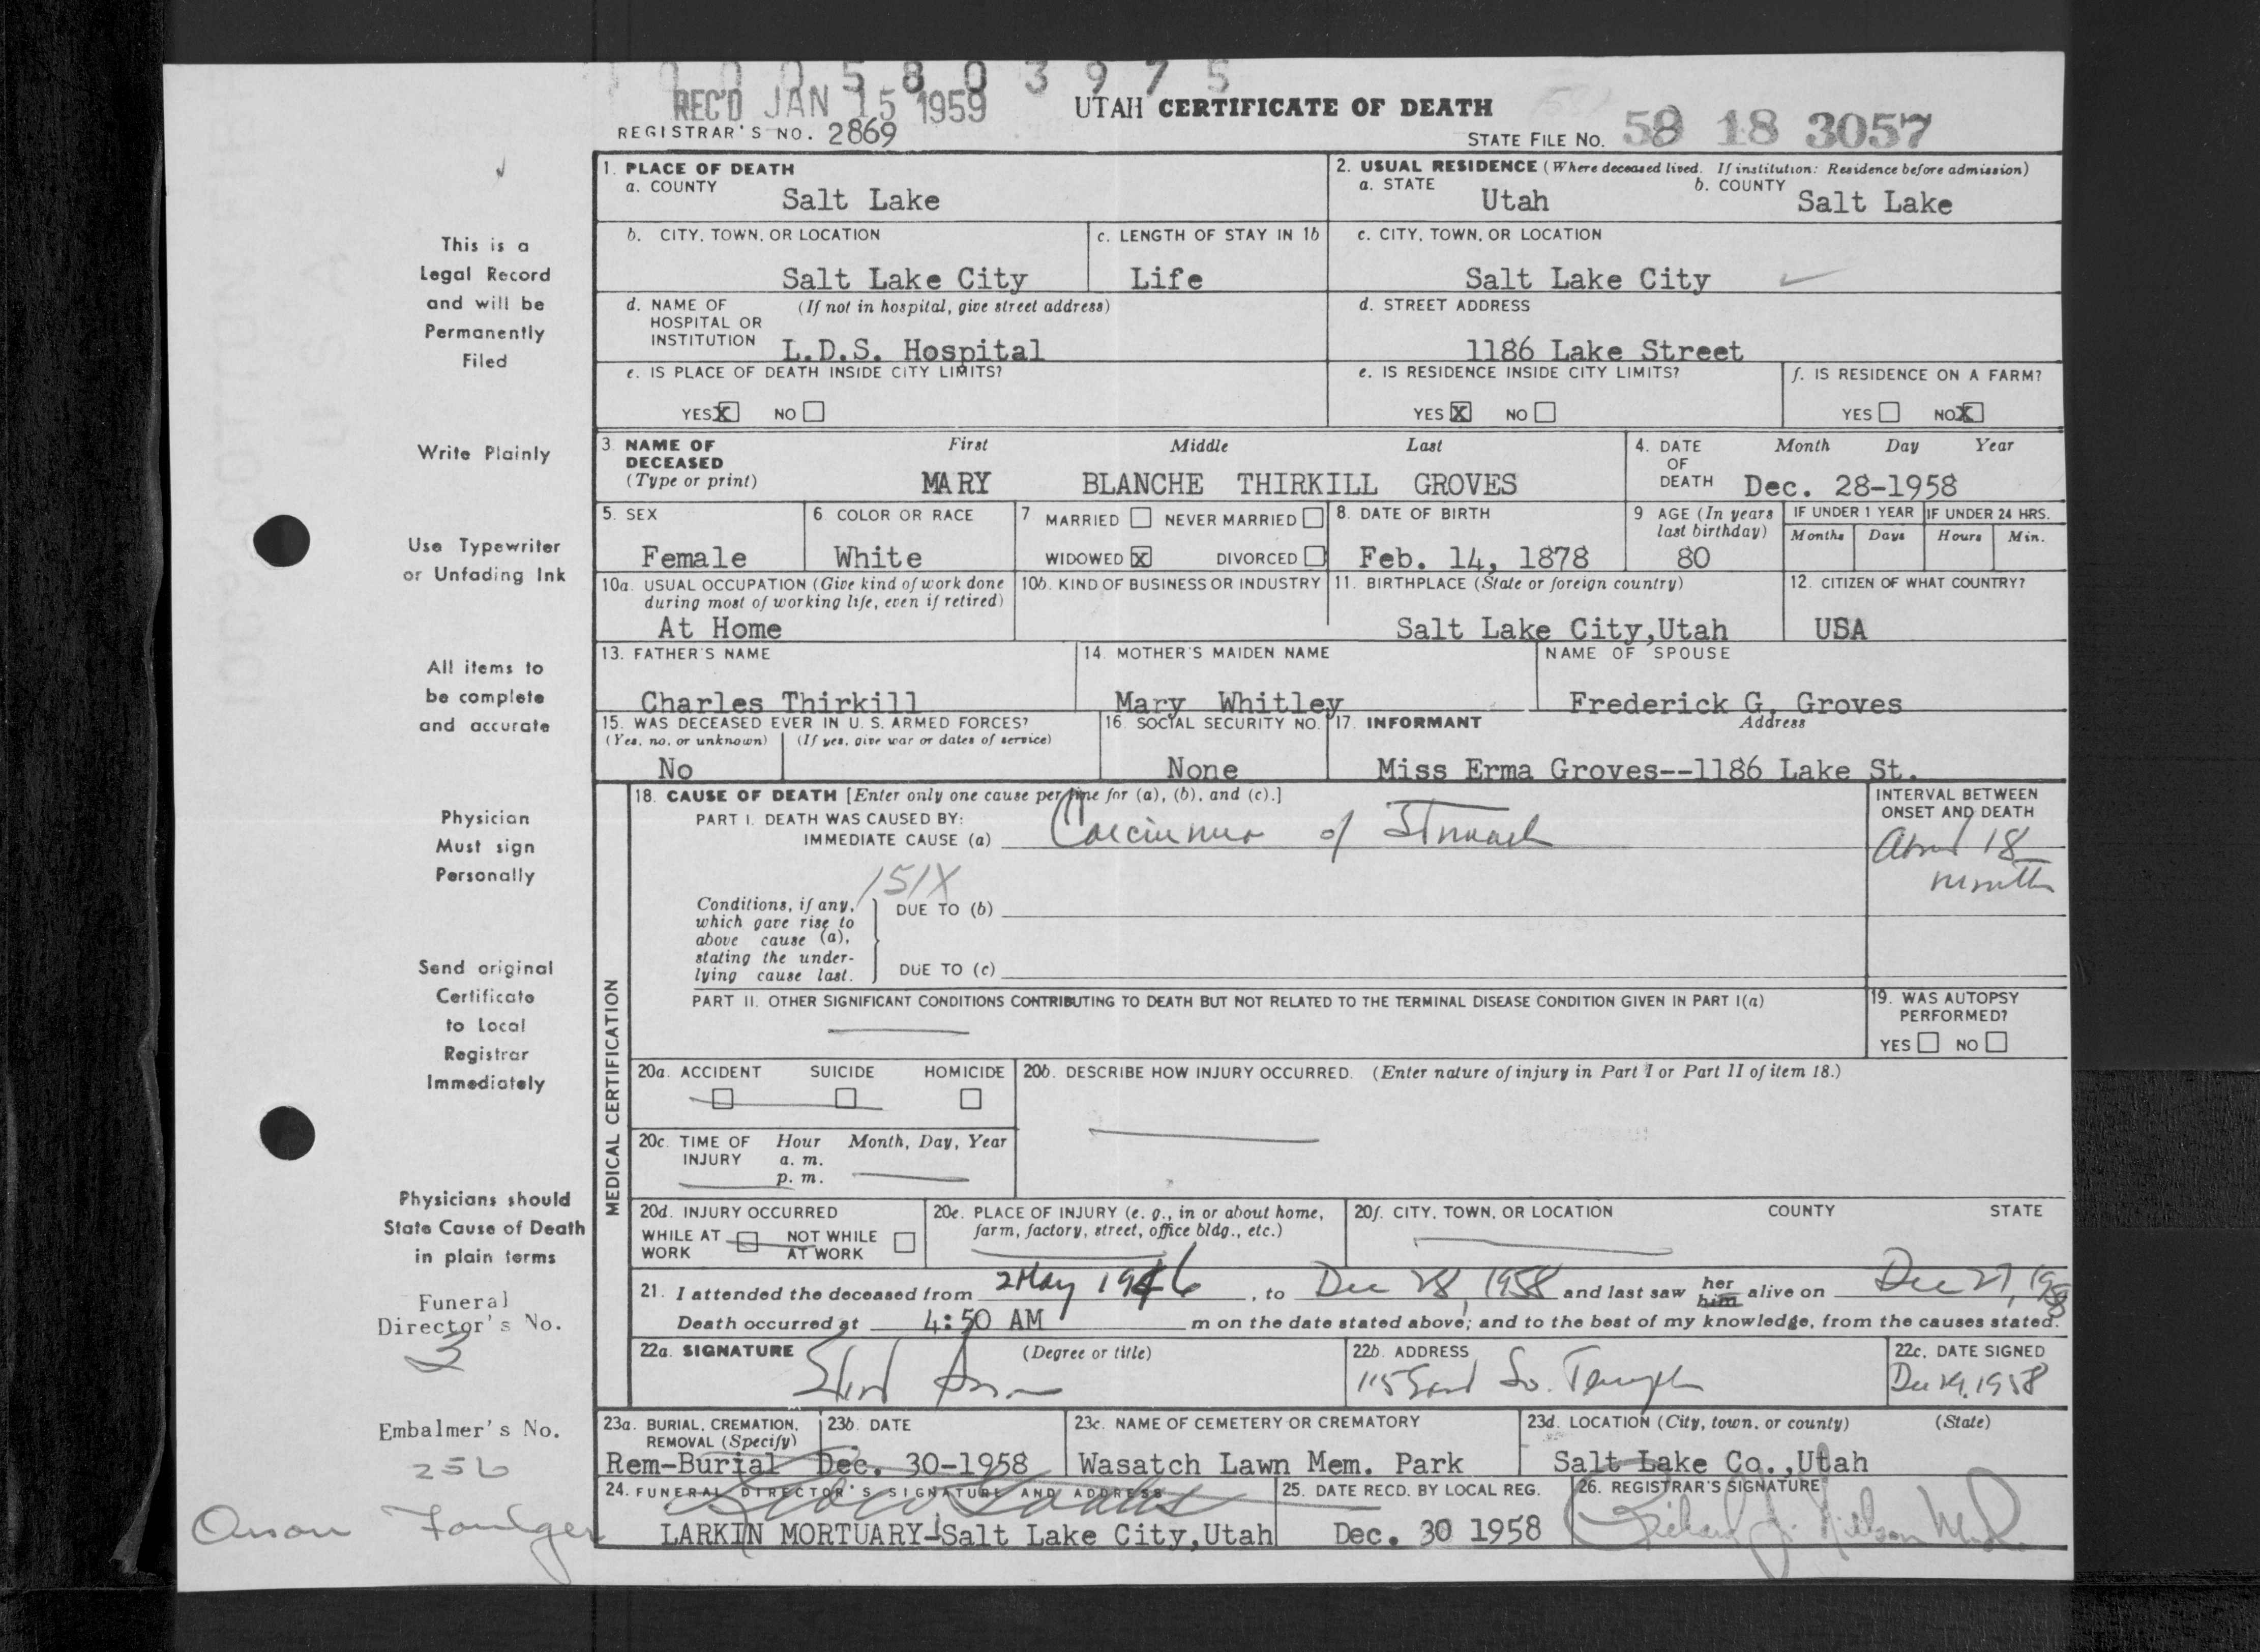 5 8 0 3 9 7 5
REC'D JAN 15 1959
UTAH CERTIFICATE OF DEATH
REGISTRAR'S NO. 2869
STATE FILE NO. 58 18 3057
1. PLACE OF DEATH
a. COUNTY Salt Lake
2. USUAL RESIDENCE (Where deceased lived. If institution: Residence before admission)
a. STATE Utah b. COUNTY Salt Lake
b. CITY, TOWN, OR LOCATION Salt Lake City
c. LENGTH OF STAY IN 1b Life
c. CITY, TOWN, OR LOCATION Salt Lake City
d. NAME OF HOSPITAL OR INSTITUTION (If not in hospital, give street address) L.D.S. Hospital
d. STREET ADDRESS 1186 Lake Street
e. IS PLACE OF DEATH INSIDE CITY LIMITS?
YES X NO
e. IS RESIDENCE INSIDE CITY LIMITS?
YES X NO
f. IS RESIDENCE ON A FARM?
YES NO X
3. NAME OF DECEASED (Type or print)
First Middle Last
MARY BLANCHE THIRKILL GROVES
4. DATE OF DEATH Month Day Year
Dec. 28-1958
5. SEX Female
6 COLOR OR RACE White
7 MARRIED NEVER MARRIED
WIDOWED X DIVORCED
8. DATE OF BIRTH Feb. 14, 1878
9 AGE (In years last birthday) 80
IF UNDER 1 YEAR Months Days
IF UNDER 24 HRS. Hours Min.
10a. USUAL OCCUPATION (Give kind of work done during most of working life, even if retired)
At Home
10b. KIND OF BUSINESS OR INDUSTRY
11. BIRTHPLACE (State or foreign country)
Salt Lake City,Utah
12. CITIZEN OF WHAT COUNTRY?
USA
13. FATHER'S NAME
Charles Thirkill
14. MOTHER'S MAIDEN NAME
Mary Whitley
NAME OF SPOUSE
Frederick G. Groves
15. WAS DECEASED EVER IN U. S. ARMED FORCES?
(Yes, no, or unknown) (If yes, give war or dates of service)
No
16. SOCIAL SECURITY NO.
None
17. INFORMANT Address
Miss Erma Groves--1186 Lake St.
MEDICAL CERTIFICATION
18. CAUSE OF DEATH [Enter only one cause per line for (a), (b), and (c).]
PART I. DEATH WAS CAUSED BY:
IMMEDIATE CAUSE (a) Carcinoma of Stomach
INTERVAL BETWEEN ONSET AND DEATH
About 18 months
151X
Conditions, if any, which gave rise to above cause (a), stating the underlying cause last.
DUE TO (b)
DUE TO (c)
PART II. OTHER SIGNIFICANT CONDITIONS CONTRIBUTING TO DEATH BUT NOT RELATED TO THE TERMINAL DISEASE CONDITION GIVEN IN PART I(a)
19. WAS AUTOPSY PERFORMED?
YES NO
20a. ACCIDENT SUICIDE HOMICIDE
20b. DESCRIBE HOW INJURY OCCURRED. (Enter nature of injury in Part I or Part II of item 18.)
20c. TIME OF INJURY Hour Month, Day, Year
a. m.
p. m.
20d. INJURY OCCURRED
WHILE AT WORK NOT WHILE AT WORK
20e. PLACE OF INJURY (e. g., in or about home, farm, factory, street, office bldg., etc.)
20f. CITY, TOWN, OR LOCATION COUNTY STATE
21. I attended the deceased from 2 May 1946, to Dec 28, 1958 and last saw her him alive on Dec 27, 1958
Death occurred at 4:50 AM m on the date stated above; and to the best of my knowledge, from the causes stated.
22a. SIGNATURE (Degree or title)
22b. ADDRESS
115 East So. Temple
22c. DATE SIGNED
Dec 29, 1958
23a. BURIAL, CREMATION, REMOVAL (Specify)
Rem-Burial
23b. DATE
Dec. 30-1958
23c. NAME OF CEMETERY OR CREMATORY
Wasatch Lawn Mem. Park
23d. LOCATION (City, town, or county) (State)
Salt Lake Co.,Utah
24. FUNERAL DIRECTOR'S SIGNATURE AND ADDRESS
LARKIN MORTUARY-Salt Lake City,Utah
25. DATE RECD. BY LOCAL REG.
Dec. 30 1958
26. REGISTRAR'S SIGNATURE
Richard J. Nelson M.D.
This is a
Legal Record
and will be
Permanently
Filed
Write Plainly
Use Typewriter
or Unfading Ink
All items to
be complete
and accurate
Physician
Must sign
Personally
Send original
Certificate
to Local
Registrar
Immediately
Physicians should
State Cause of Death
in plain terms
Funeral
Director's No.
3
Embalmer's No.
256
Orson Foulger